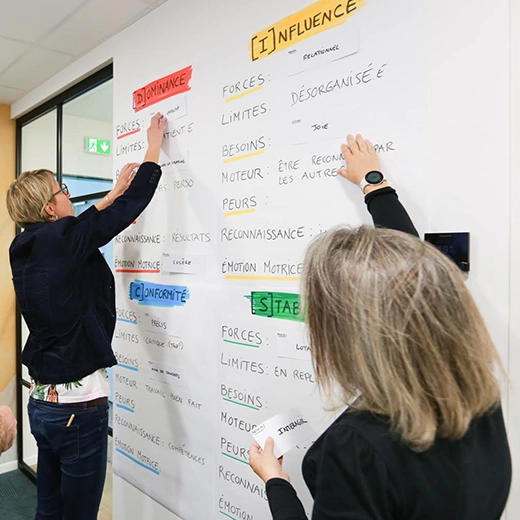 [D]OMINANCE
FORCES :
LIMITES :
BESOINS
PERSO
RECONNAISSANCE : RÉSULTATS
ÉMOTION MOTRICE
COLÈRE
[I]NFLUENCE
FORCES :
RELATIONNEL
LIMITES :
DÉSORGANISÉ.E
BESOINS :
JOIE
MOTEUR : ÊTRE RECONNU PAR
LES AUTRES
PEURS :
RECONNAISSANCE :
ÉMOTION MOTRICE
[C]ONFORMITÉ
FORCES :
PRÉCIS
LIMITES :
BESOINS :
MOTEUR : TRAVAIL BIEN FAIT
PEURS :
RECONNAISSANCE : COMPÉTENCES
ÉMOTION MOTRICE
[S]TAB
FORCES :
LIMITES : EN REPL
BESOINS :
MOTEUR :
PEURS :
RECONN
ÉMOTION